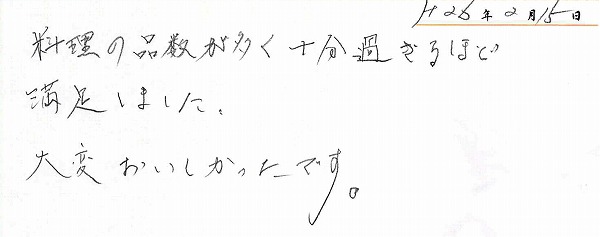 H26年2月15日
料理の品数が多く十分過ぎるほど
満足しました。
大変おいしかったです。